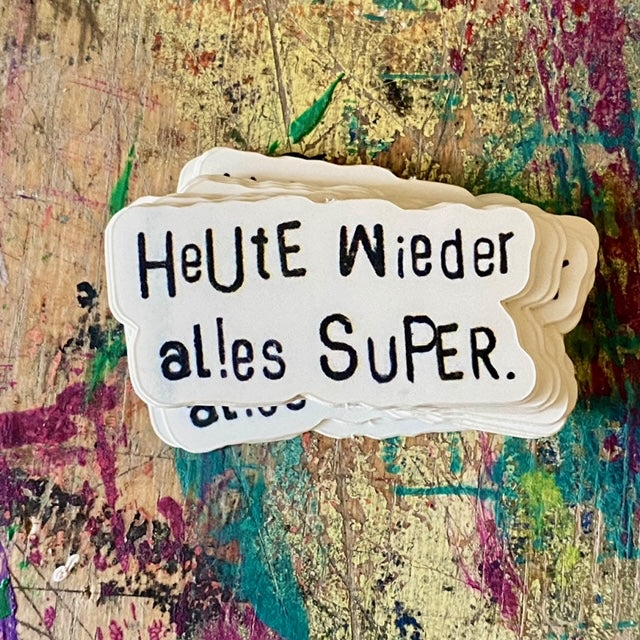 HeUtE Wieder
al!es SuPER.
al!es